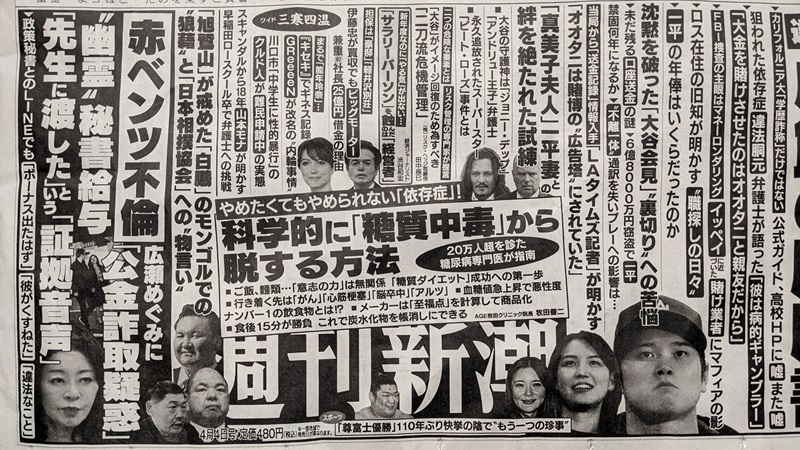 カリフォルニア大「学歴詐称」だけではない 公式ガイド、高校HPに「嘘また嘘」
狙われた依存症 違法胴元 弁護士が語った「彼は病的ギャンブラー」
「大金を賭けさせたのはオオタニと親友だから」
FBI捜査の主眼はマネーロンダリング イッペイに近づいた「賭け業者」にマフィアの影
ロス在住の旧知が明かす“職探しの日々”
一平の年俸はいくらだったのか
沈黙を破った「大谷会見」“裏切り”への苦悩
未だ残る「口座送金」の謎 6億8000万円窃盗で一平
禁固何年になるか “不離一体”通訳を失いプレーへの影響は…
当局から「送金記録」情報入手 LAタイムズ記者が明かす
オオタニは賭博の「広告塔」にされていた
「真美子夫人」一平妻との
絆を絶たれた試練
大谷の守護神はジョニー・デップ
「アンドリュー王子」弁護士
永久追放されたスーパースター
「ピート・ローズ」事件とは
二つの危機に際した「リスク管理」の専門家が提言
「大谷」がイメージ回復のため為すべき
二刀流危機管理
ワイド 三寒四温
新年度なのにやる気が出ない!!
「サラリーパーソン」を蝕む「経営者」
担保は「華麗」「軽井沢別荘」
伊藤忠が買収でもビッグモーター
兼重前社長 25億円借金の理由
まるで「百年玲於」
「キセキ」でギネス記録
GReeeeNが改名の“内輪事情”
川口市「中学生に性的暴行」の
クルド人が難民申請中の実態
スキャンダルから18年 山本モナが明かす
早稲田ロースクール卒で弁護士への挑戦
「旭鷲山」が戒めた「白鵬」のモンゴルでの
狼藉と「日本相撲協会」への“物言い”
赤ベンツ不倫
広瀬めぐみに
“幽霊”秘書給与「公金詐取疑惑」
「先生に渡した」という「証拠音声」
政策秘書とのLINEでも「ボーナス出たはず」「彼がくすねた」「違法なこと」
やめたくてもやめられない「依存症」!!
科学的に「糖質中毒」から
脱する方法
20万人超を診た
糖尿病専門医が指南
■ご飯、麺類…「意志の力」は無関係「糖質ダイエット」成功への第一歩
■行き着く先は「がん」「心筋梗塞」「脳卒中」「アルツ」■血糖値急上昇で悪性度
ナンバー1の飲食物とは!? ■メーカーは「至福点」を計算して商品化
■食後15分が勝負 これで炭水化物を帳消しにできる
AGE牧田クリニック院長 牧田善二
週刊新潮
4月4日号/定価480円(税込)
スポーツ
「尊富士優勝」110年ぶり快挙の陰で“もう一つの珍事”